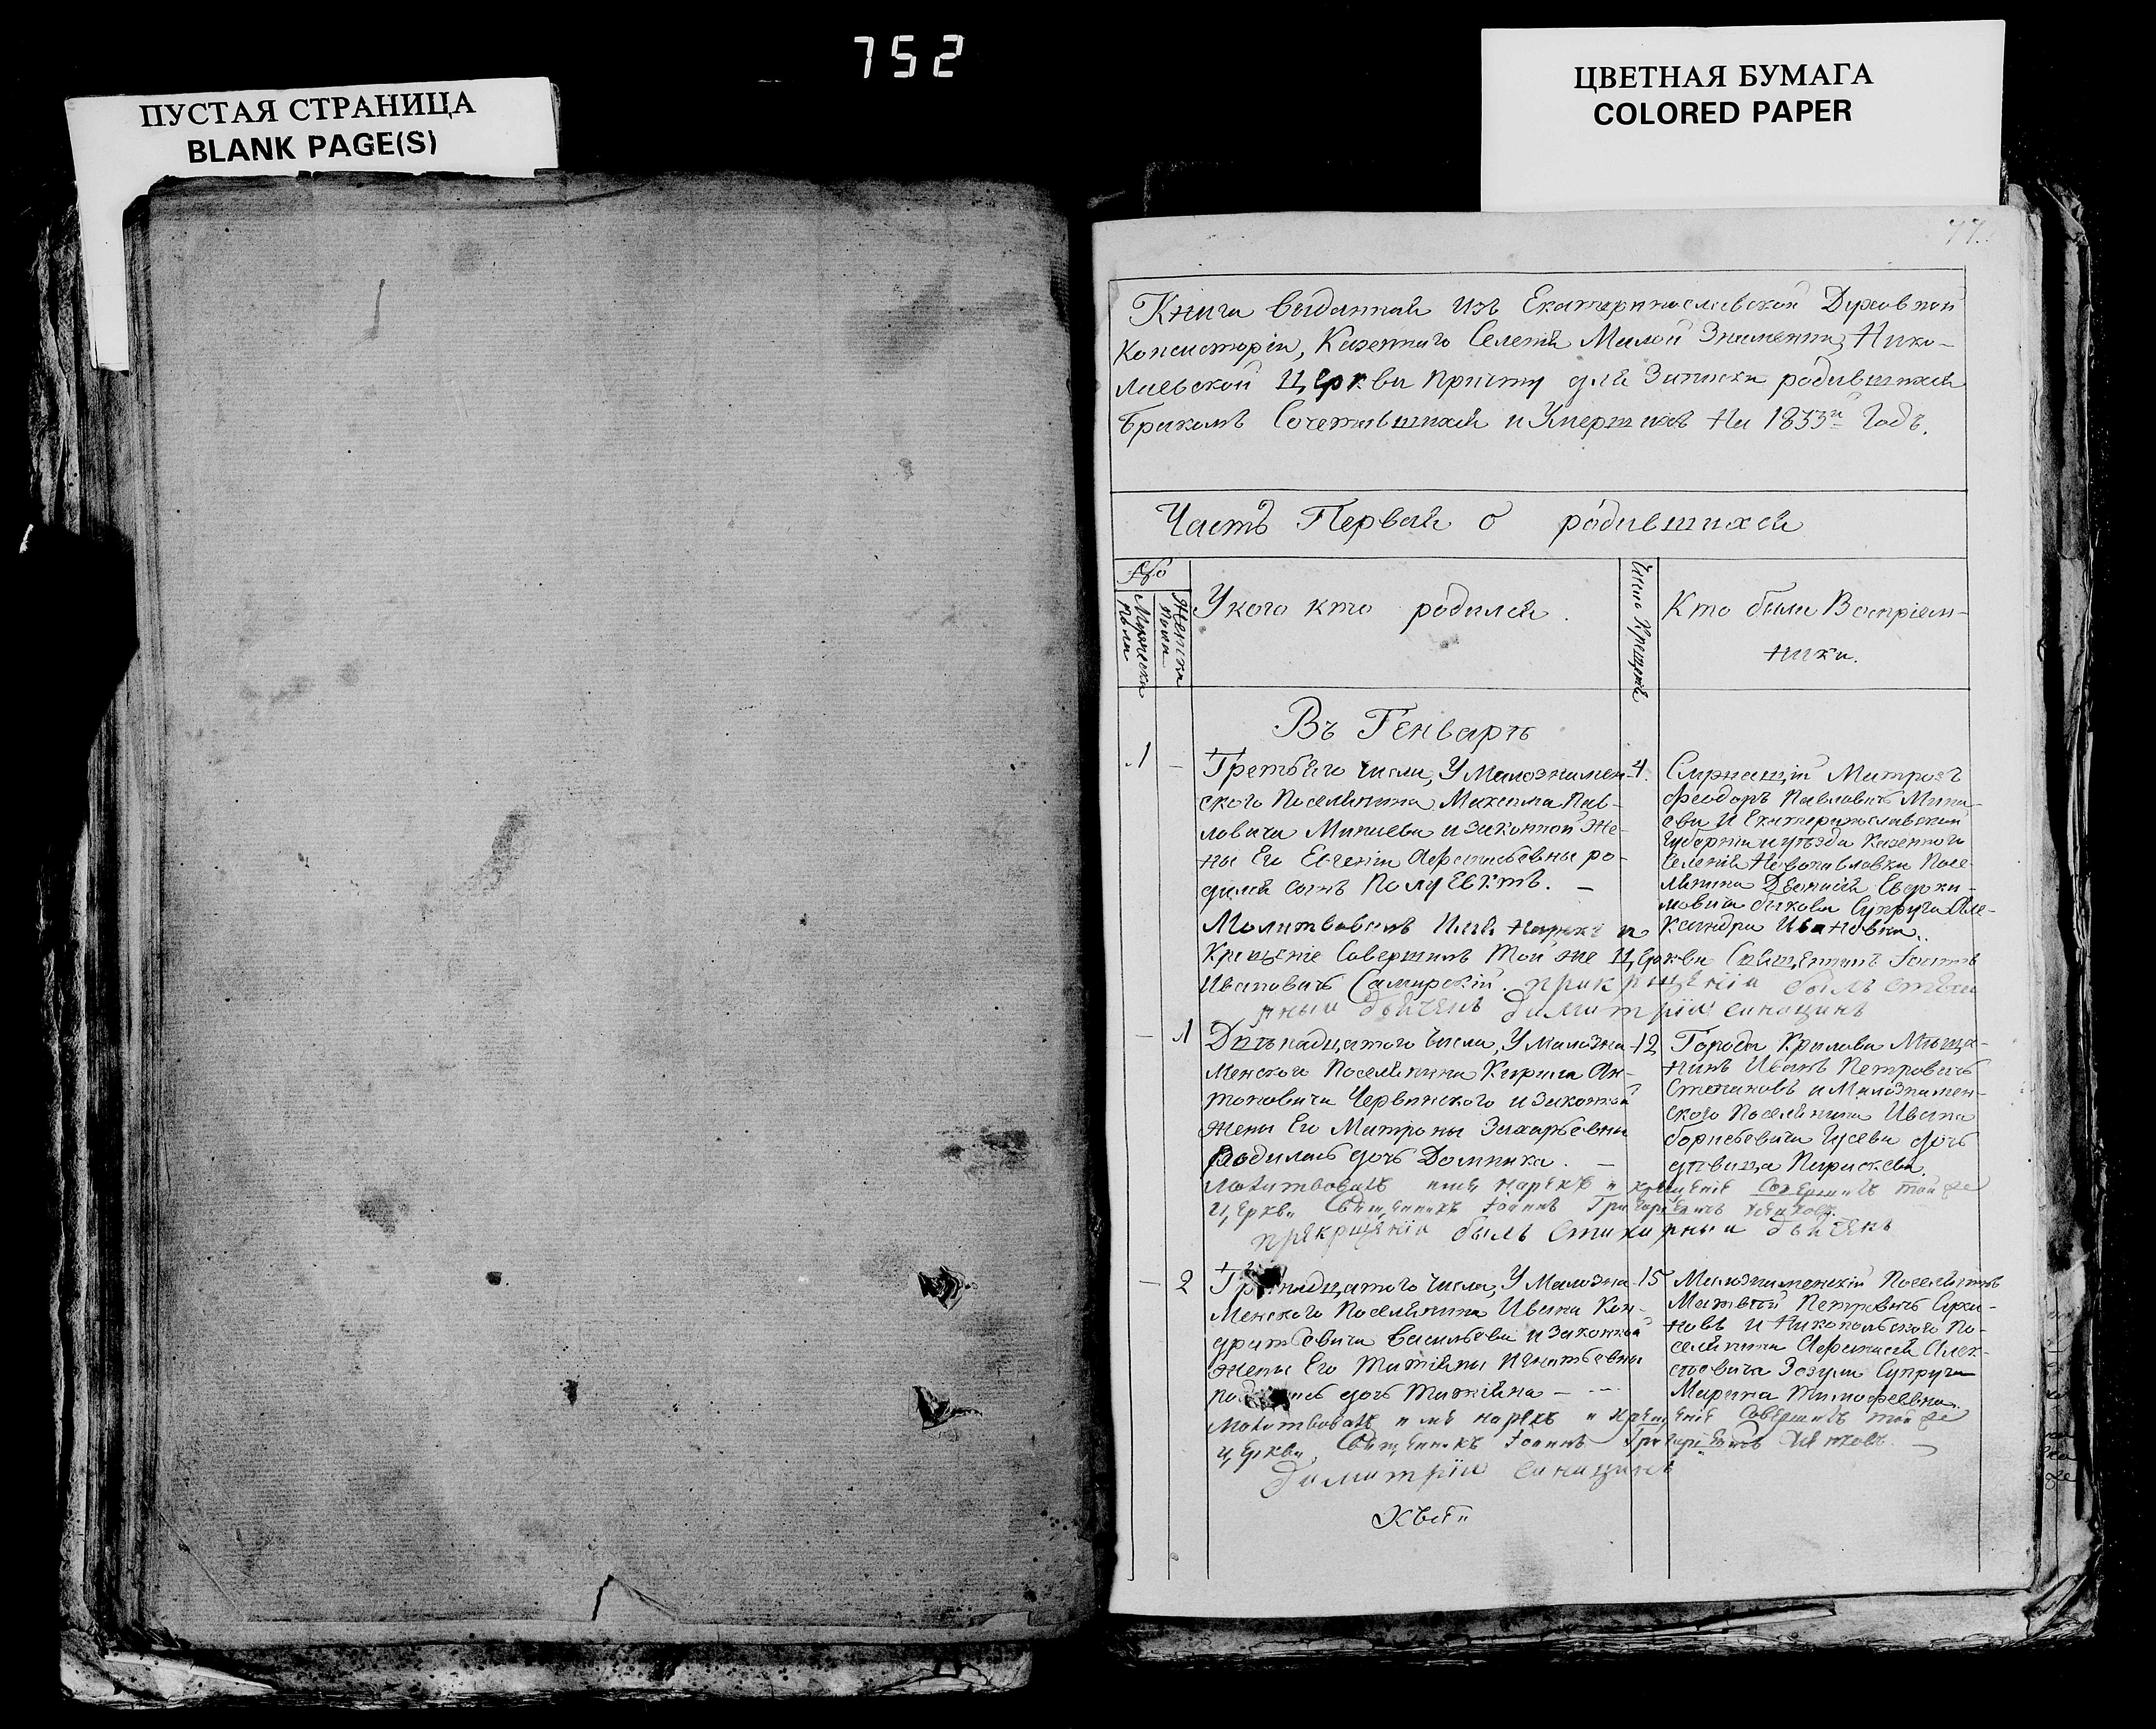 752
ПУСТАЯ СТРАНИЦА
BLANK PAGE(S)
ЦВЕТНАЯ БУМАГА
COLORED PAPER
77.
Книга выданная изъ Екатеринославской Духовной
Консисторіи, Казеннаго Селенія Малой Знаменки, Нико-
лаевской Церкви причту для Записки родившихся
Бракомъ Сочетавшихся и Умершихъ На 1833й Годъ.
Часть Первая о родившихся
Мужеска пола
Женска пола
Число Крещенія
У кого кто родился.
Кто были Воспріем-
ники.
Въ Генварѣ
1 - Третьяго числа, У Малознамен-
ского Поселянина Максима Пав-
ловича Минаева и законной Же-
ны Его Евгеніи Афанасьевны ро-
дился сынъ Полуевктъ. —
Молитвовалъ Имя нарекъ и
Крещеніе Совершилъ Той же Церкви Священникъ Іоаннъ
Ивановичъ Самарскій. при крещеніи былъ стиха
рный дьячекъ Димитрій синицинъ
4. Служащій Матрозъ
Феодоръ Павловичъ Мина-
евъ И Екатеринославской
Губерніи и уѣзда Казеннаго
Селенія Новопавловки Посе-
лянина
Супруга Але-
ксандра Ивановна.
- 1 Двѣнадцатого числа, У Малозна-
менского Поселянина Кирила Ан-
тоновича Червинского и законной
жены Его Матроны Захарьевны
Родилась дочь Домника. —
Молитвовалъ имя нарекъ и крещеніе Совершилъ той же
Церкви Священникъ Іоаннъ Григорьевичъ
при крщеніи былъ Стихарный дьячекъ
12 Города Крилова Мѣща-
нинъ Иванъ Петровичъ
Степановъ и Малознамен-
ского Поселянина Ивана
Борисьевича Гусева дочь
дѣвица Параскева.
- 2 Тринадцатого числа, У Малозна-
менского Поселянина Ивана Кон-
дратьевича Васильева и Законной
Жены Его Татіаны Игнатьевны
родилась дочь Татіана —
Молитвовалъ имя нарекъ и крещеніе Совершилъ той же
Церкви Священникъ Іоаннъ Григорьевичъ
Димитрій синицинъ
15 Малознаменскій Поселянинъ
Матвѣй Петровичъ Суха-
новъ И Никопольского По-
селянина Афанасія Алек-
сѣевича Зозули Супруга
Марина Тимофеевна.